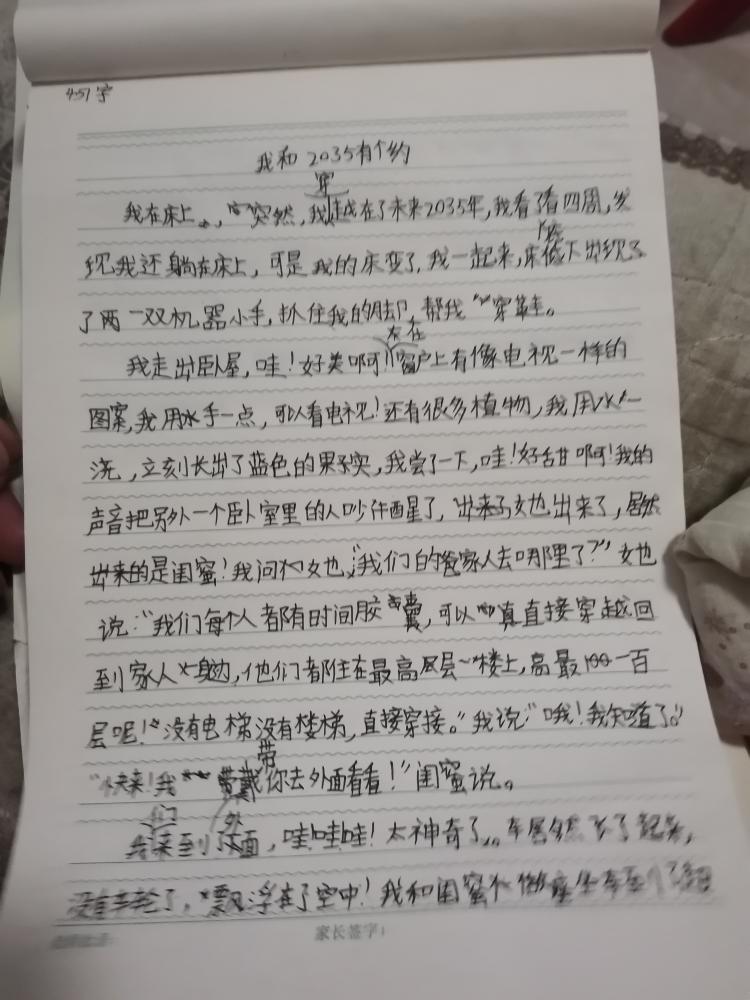 451字
我和2035有个约
我在床上，突然，我穿越在了未来2035年，我看了看四周，发
现我还躺在床上，可是我的床变了，我一起来，床底下出现了
了两一双机器小手，抓住我的脚，帮我穿鞋。
我走出卧屋，哇！好美啊！窗户上有像电视一样的
图案，我用水手一点，可以看电视！还有很多植物，我用水一
浇，立刻长出了蓝色的果子实，我尝了一下，哇！好甜啊！我的
声音把另外一个卧室里的人吵醒了，她出来了，居然
是闺蜜！我问她：“我们的家人去哪里了？”她
说：“我们每个人都有时间胶囊，可以直接穿越回
到家人身边，他们都住在最高层楼上，高最一百
层呢！没有电梯没有楼梯，直接穿接。”我说：“哦！我知道了。”
“快来！我带你去外面看看！”闺蜜说。
我们来到外面，哇哇哇！太神奇了，车居然飞了起来，
没有车轮了，飘浮在了空中！我和闺蜜
家长签字：